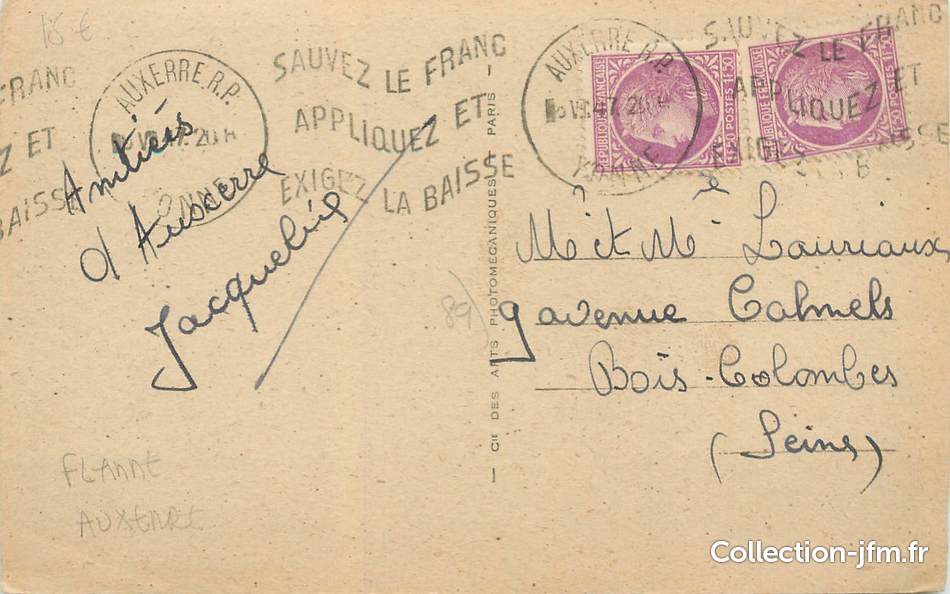 18 €
FRANC
Z ET
BAISSE
AUXERRE R.P.
47. 20H
YONNE
SAUVEZ LE FRANC
APPLIQUEZ ET
EXIGEZ LA BAISSE
AUXERRE R.P.
47. 20H
YONNE
SAUVEZ LE FRANC
APPLIQUEZ ET
REPUBLIQUE FRANÇAISE
1F50 POSTES 1F50
REPUBLIQUE FRANÇAISE
1F50 POSTES 1F50
Amitiés
d'Auxerre
Jacqueline
— Cie DES ARTS PHOTOMECANIQUES - PARIS —
89)
Mr et Me Lauriaux
9 avenue Calmels
Bois-Colombes
(Seine)
FLAMME
AUXERRE
Collection-jfm.fr